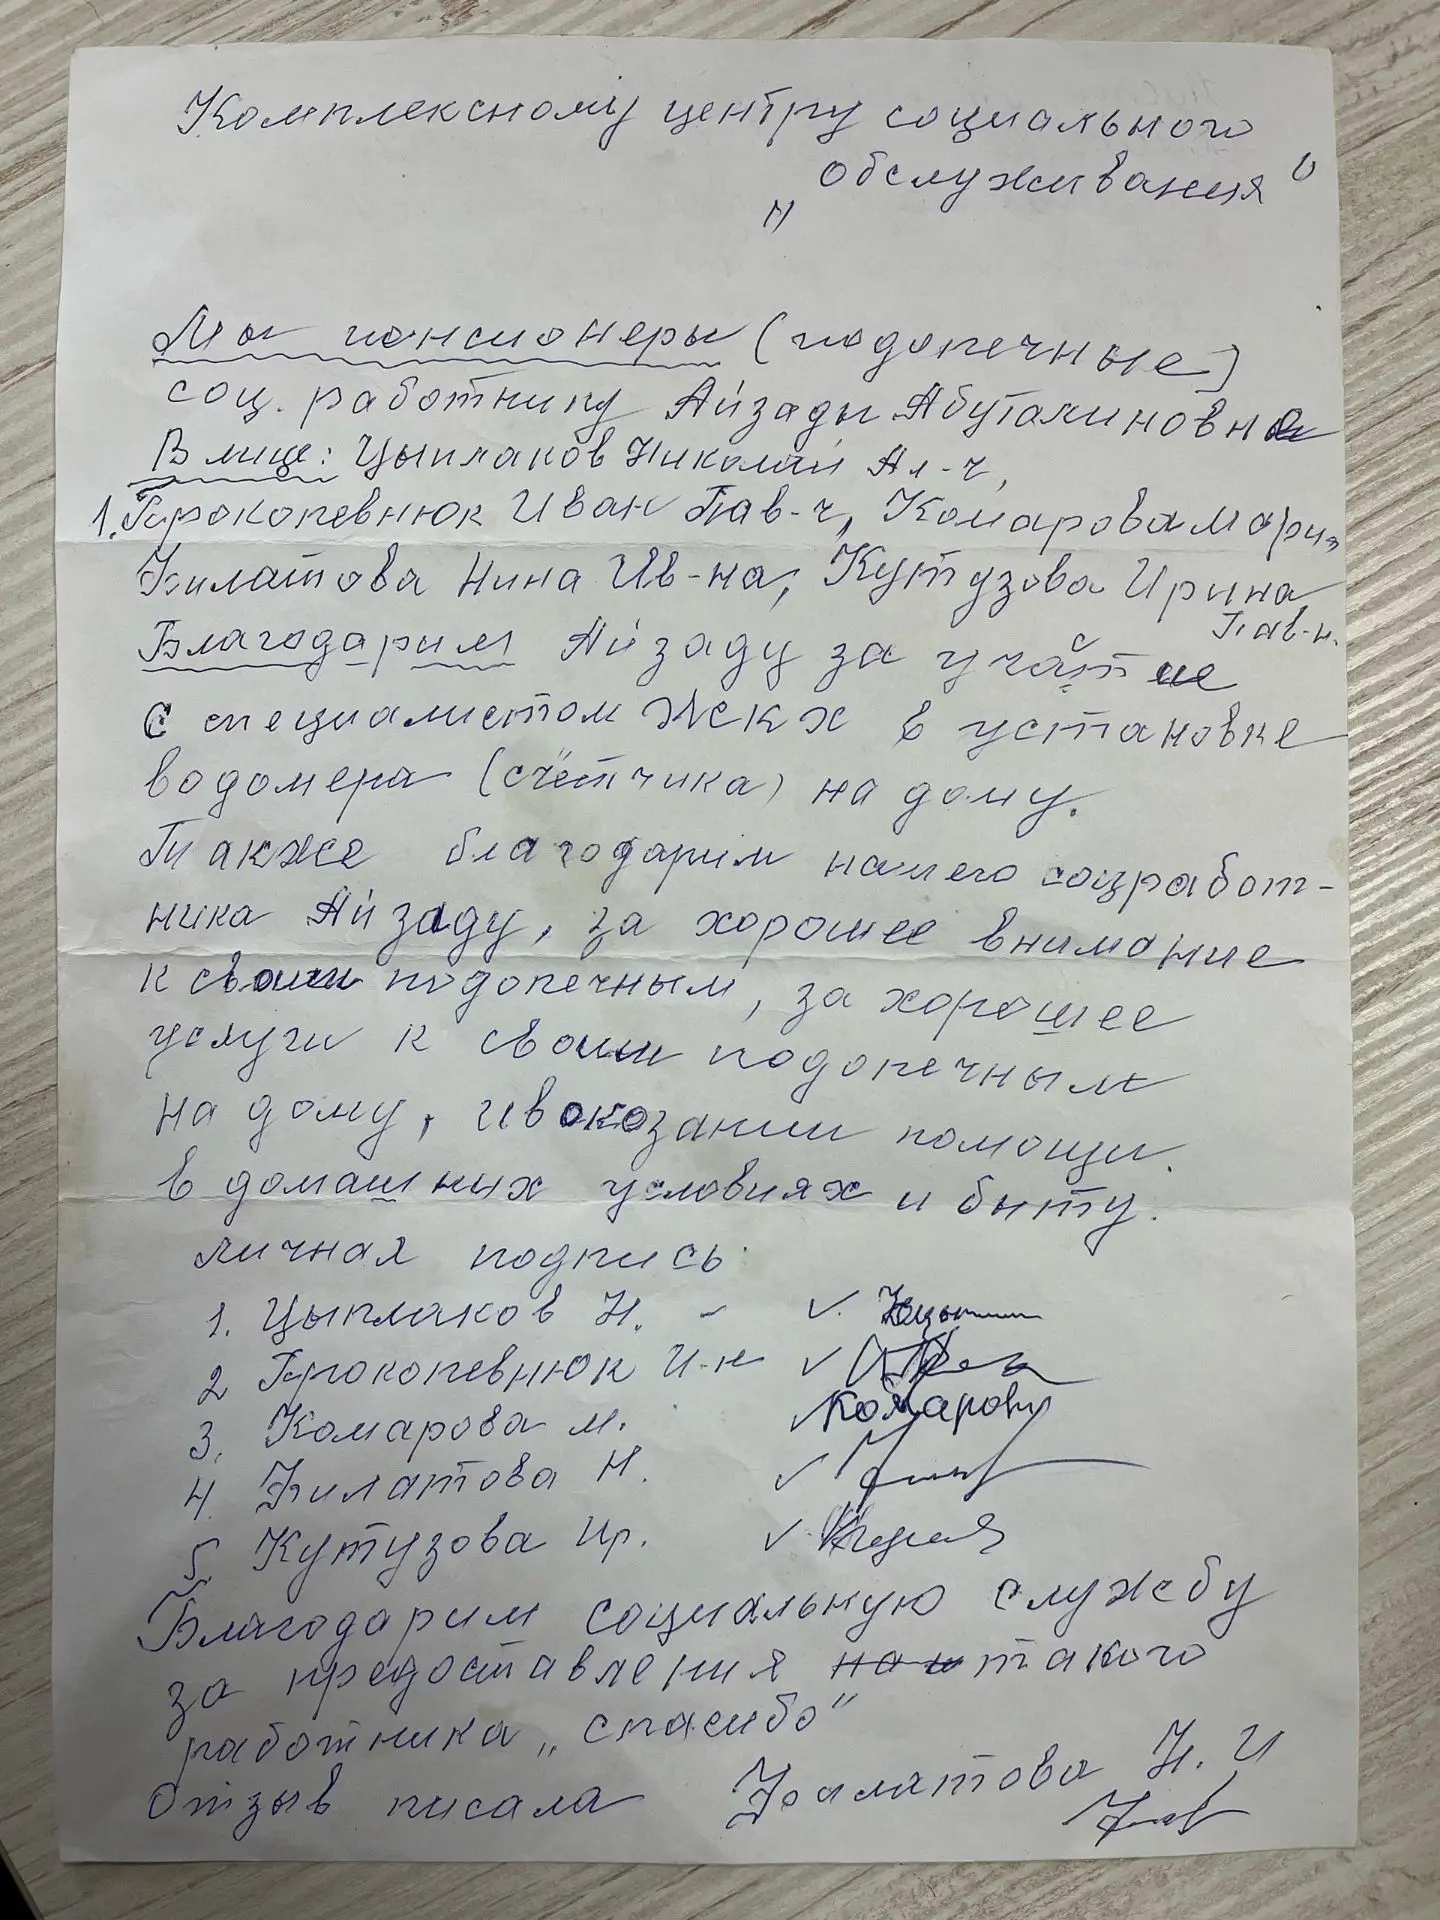 Комплексному центру социального
„ обслуживания "
Мы пенсионеры (подопечные)
соц. работнику Айзады Абуталиновне
В лице: Цыплаков Николай Ал-ч,
1. Прокопевнюк Иван Пав-ч, Комарова Мария
Билатова Нина Ив-на, Кутузова Ирина
Пав-н.
Благодарим Айзаду за участие
с специалистом ЖСКХ в установке
водомера (счётчика) на дому.
Также благодарим нашего соцработ-
ника Айзаду, за хорошее внимание
к своим подопечным, за хорошее
услуги к своим подопечным
на дому, и в окозании помощи
в домашних условиях и быту.
личная подпись
1. Цыплаков Н. -
2 Прокопевнюк И-н
3. Комарова м. Комарову
4. Билатова Н.
5. Кутузова Ир.
Благодарим социальную службу
за предоставления такого
работника „спасибо"
Отзыв писала Н. И